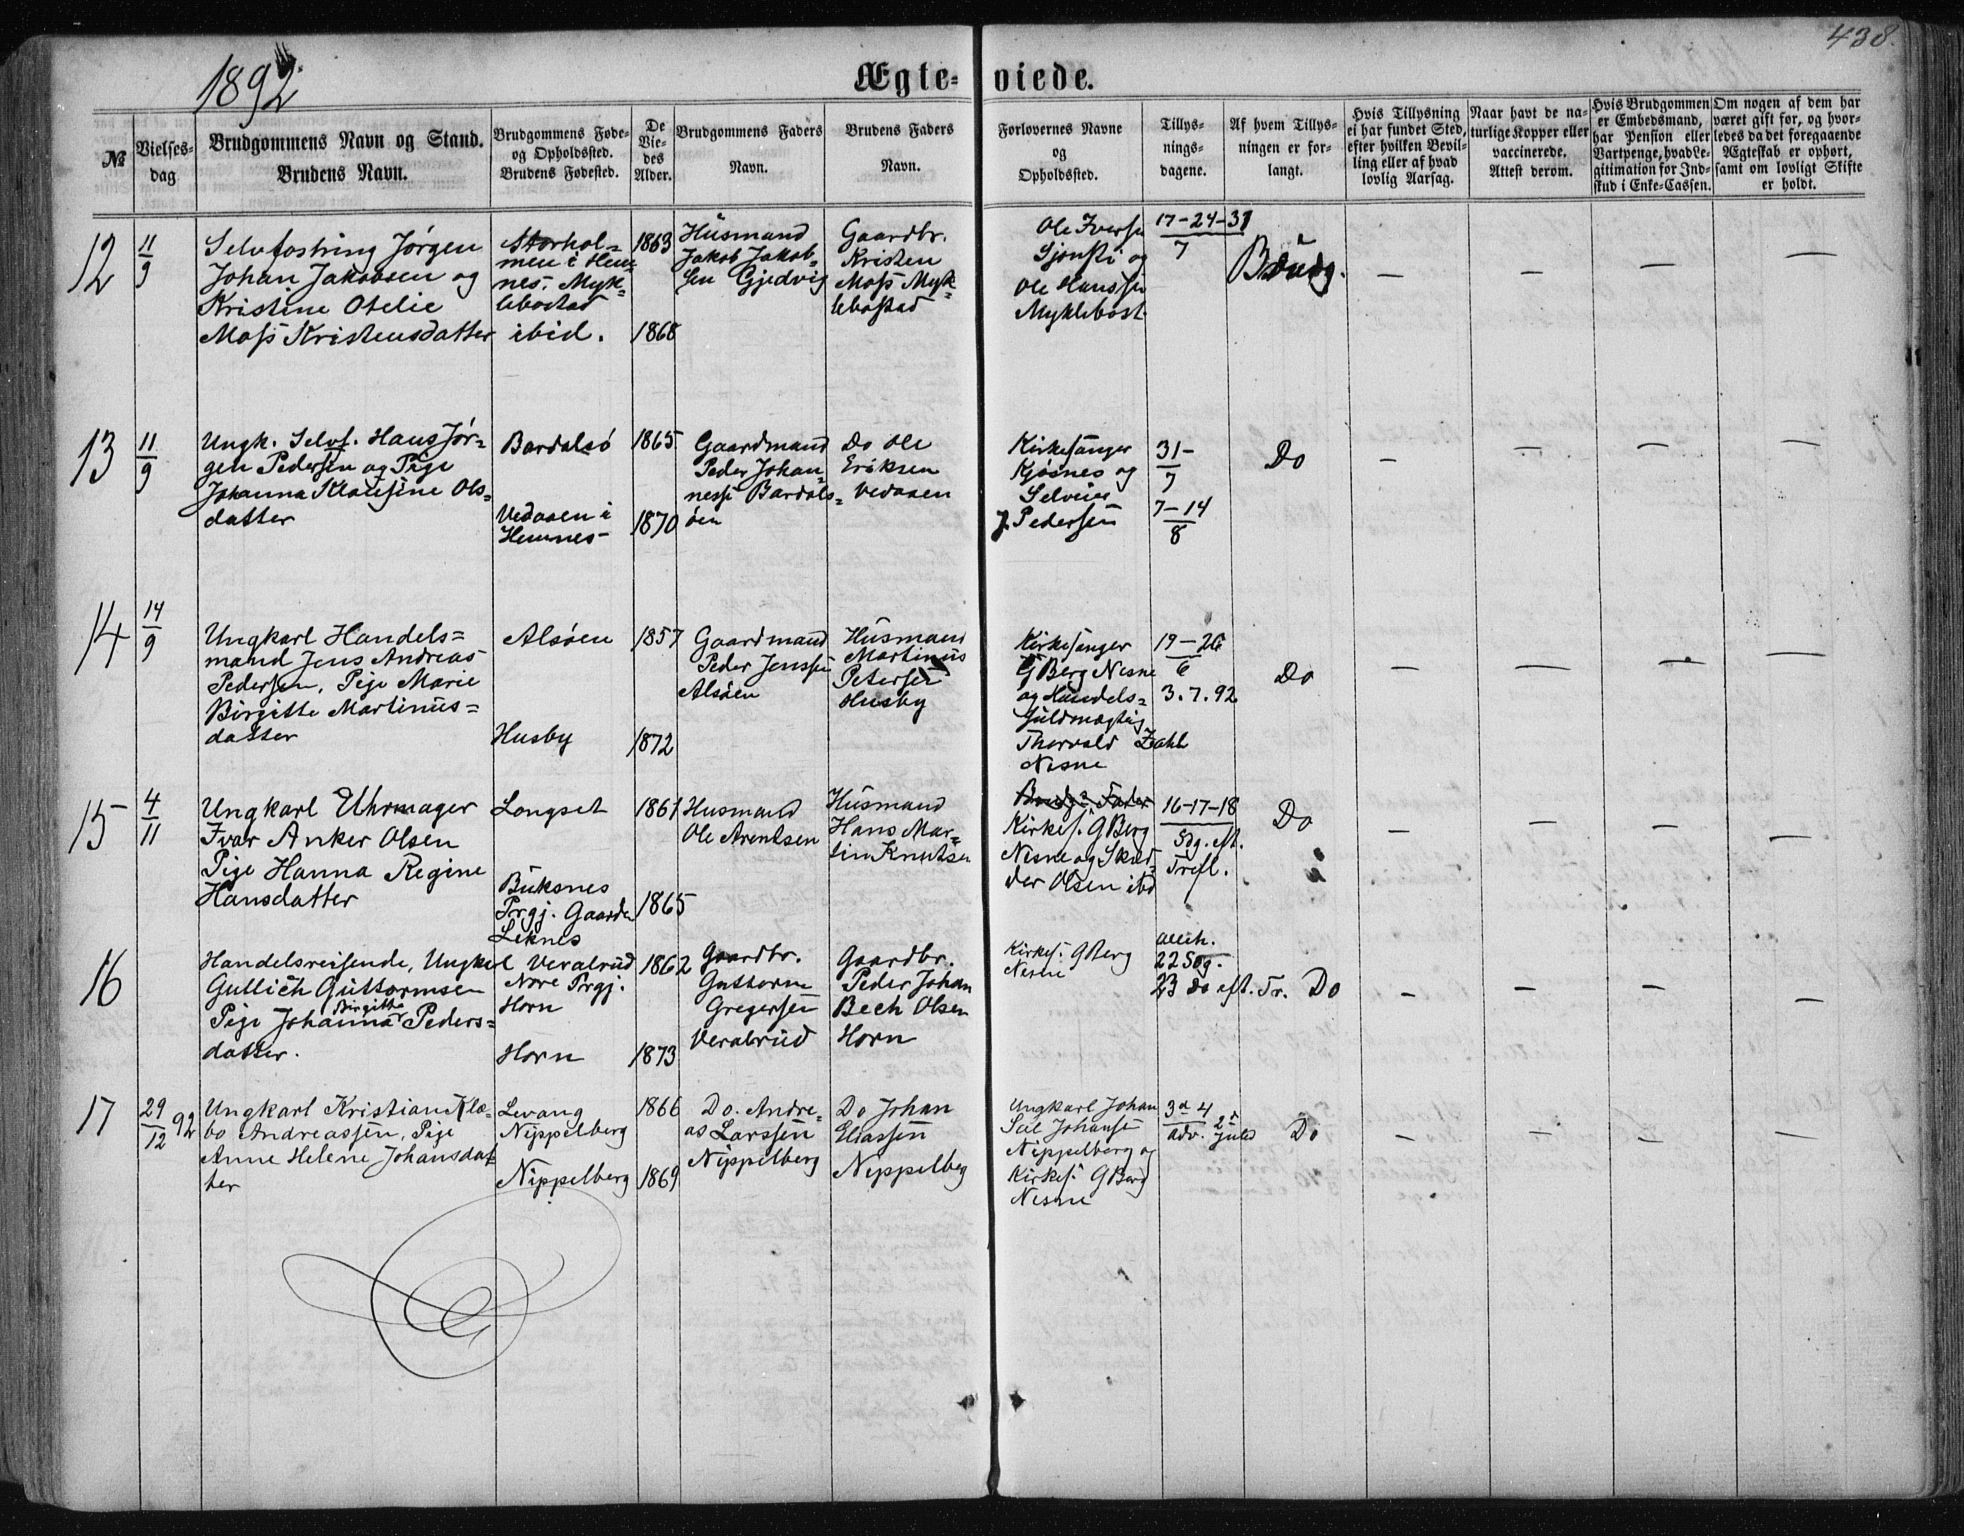 438.
1892.
Ægteviede.
№
Vielses-
dag
Brudgommens Navn og Stand.
Brudens Navn.
Brudgommens Føde-
og Opholdssted.
Brudens Fødested.
De
Vie-
des
Alder.
Brudgommens Faders
Navn.
Brudens Faders
Navn.
Forlovernes Navne
og
Opholdssted.
Tillys-
nings-
dagene.
Af hvem Tillys-
ningen er for-
langt.
Hvis Tillysning
ei har fundet Sted,
efter hvilken Bevil-
ling eller af hvad
lovlig Aarsag.
Naar havt de na-
turlige Kopper eller
vaccinerede.
Attest derom.
Hvis Brudgommen
er Embedsmand,
har Pension eller
Vartpenge, hvad Le-
gitimation for Ind-
skud i Enke-Cassen.
Om nogen af dem har
været gift for, og hvor-
ledes da det foregaaende
Ægteskab er ophørt,
samt om lovligt Skifte
er holdt.
12
11/9
Selvfostring Jørgen
Johan Jakobsen og
Kristine Otelie
Moss Kristensdatter
Storhol-
men i Hem-
nes. Myk-
lebostad
ibid.
1863
1868
Husmand
Jakob Jakob-
sen Gjedvig
Gaardbr.
Kristen
Moss Myk-
lebostad
Ole Iversen
Sjonsti og
Ole Hanssen
Myklebost
17-24-31
7
Brudg.
— — — —
13
11/9
Ungk. Selvf. Hans Jør-
gen Pedersen og Pige
Johanna Klausine Ols-
datter
Bardalsø
Vedaaen i
Hemnes-
1865
1870
Gaardmand
Peder Johan-
nesse Bardals-
øen
Do Ole
Eriksen
Vedaaen
Kirkesanger
Kjøsnes og
Selveier
J. Pedersen
31-
7
7-14
8
Do
— — — —
14
14/9
Ungkarl Handels-
mand Jens Andreas
Pedersen, Pige Marie
Birgitte Martinus-
datter
Alsøen
Husby
1857
1872
Gaardmand
Peder Jenssen
Alsøen
Husmand
Martinus
Petersen
Husby
Kirkesanger
G Berg Nesne
og Handels-
fuldmægtig
Thorvald Zahl
Nesne
19-26
6
3.7.92
Do
— — — —
15
4/11
Ungkarl Uhrmager
Ivar Anker Olsen
Pige Hanna Regine
Hansdatter
Longset
Buksnes
Prgj. Gaarden
Leknes
1861
1865
Husmand
Ole Arentsen
Husmand
Hans Mar-
tin Knutsen
Brudgs Fader
Kirkes. G Berg
Nesne og Skræd-
der Olsen ibd
16-17-18
Søg. eft.
Trefl.
Do
— — — —
16
Handelsreisende, Ungkal
Gullich Guttormsen
Pige Johanna Birgitte Peders-
datter.
Veralrud
Nore Prgj.
Horn
Horn
1862
1873
Gaardbr.
Guttorm
Gregersen
Veralrud
Gaardbr.
Peder Johan
Bech Olsen
Horn
Kirkes. G Berg
Nesne
22 Søg.
23 do eft. Tr.
Do
— — — —
17
29/12 92
Ungkarl Kristian Klæ-
bo Andreassen, Pige
Anne Helene Johansdat-
ter
Levang
Nippelberg
Nippelberg
1866
1869
Do. Andre-
as Larssen
Nippelberg
Do Johan
Eliassen
Nippelberg
Ungkarl Johan
Johansen
Nippelberg og
Kirkes. G Berg
Nesne
3d 4
Adv. 2d Juled
Do
— — — —